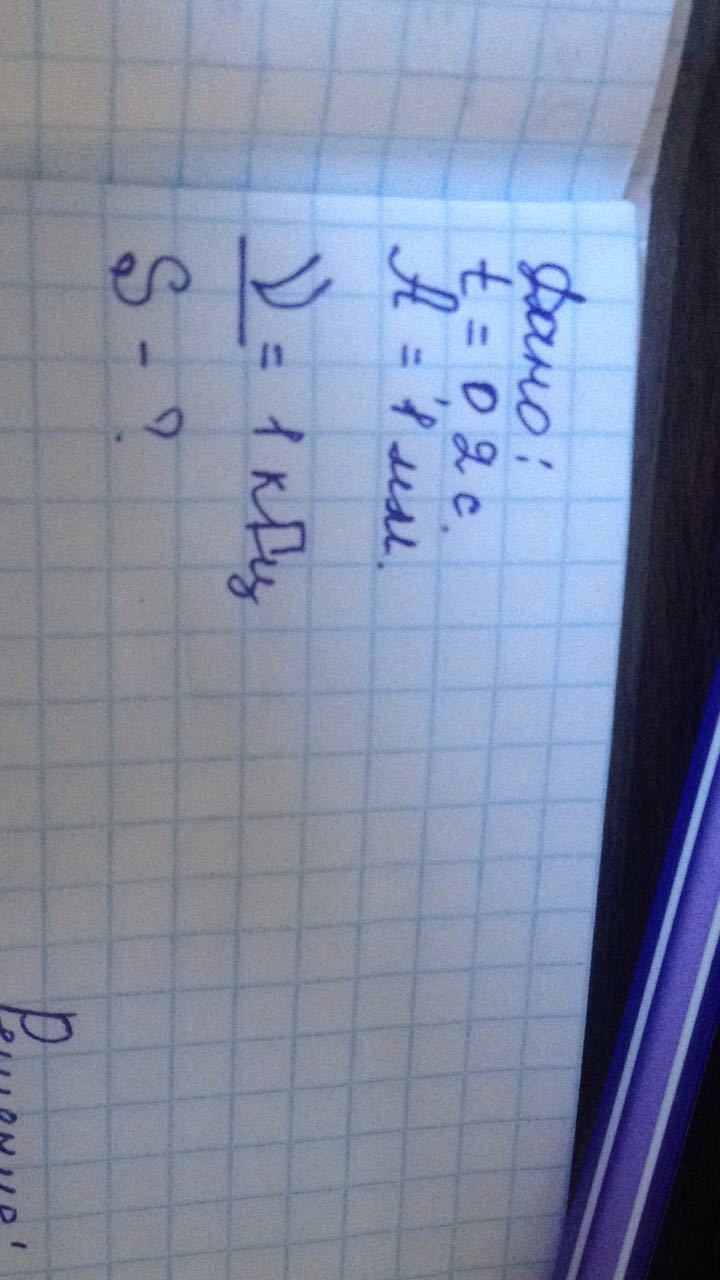 Дано:
t = 0,2 с.
A = 1 мм.
ν = 1 кГц
S - ?
Решение: